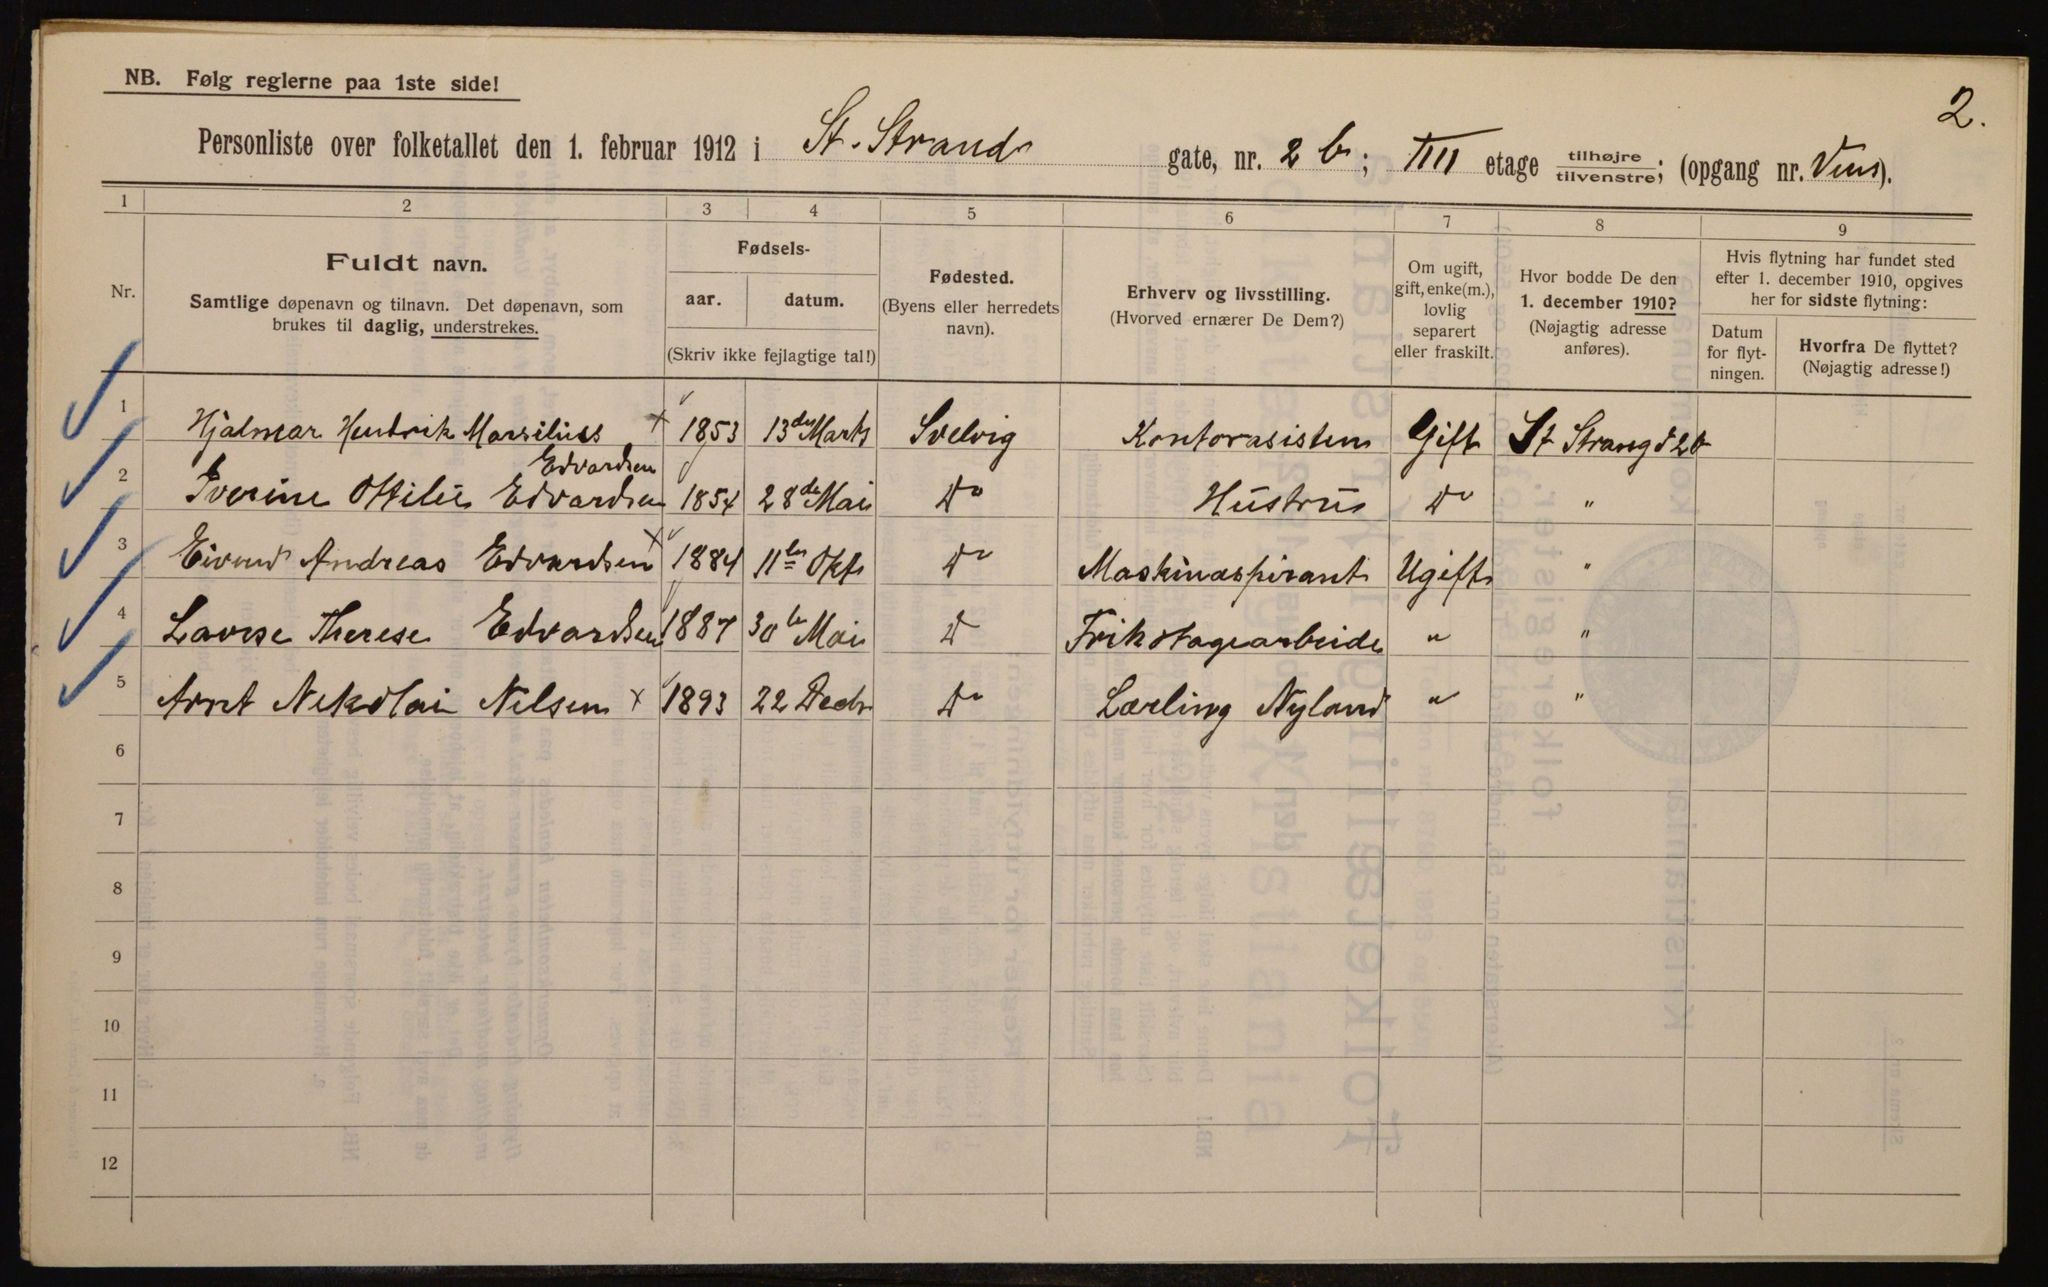 NB. Følg reglerne paa 1ste side!
2.
Personliste over folketallet den 1. februar 1912 i St. Strand gate, nr. 2 b; III etage tilhøjre tilvenstre; (opgang nr. ).
1 2 3 4 5 6 7 8 9
Nr.
Fuldt navn.
Samtlige døpenavn og tilnavn. Det døpenavn, som
brukes til daglig, understrekes.
Fødsels-
aar. datum.
(Skriv ikke fejlagtige tal!)
Fødested.
(Byens eller herredets
navn).
Erhverv og livsstilling.
(Hvorved ernærer De Dem?)
Om ugift,
gift, enke(m.),
lovlig
separert
eller fraskilt.
Hvor bodde De den
1. december 1910?
(Nøjagtig adresse
anføres).
Hvis flytning har fundet sted
efter 1. december 1910, opgives
her for sidste flytning:
Datum
for flyt-
ningen.
Hvorfra De flyttet?
(Nøjagtig adresse!)
1 Hjalmar Hendrik Marsilius Edvardsen 1853 13de Marts Svelvig Kontorasisten Gift St Strangd 2 b
2 Iverine Ottilie Edvardsen 1854 28de Mai Do Hustru Do "
3 Eivind Andreas Edvardsen 1884 11te Okt Do Maskinaspirant Ugift "
4 Lovise Therese Edvardsen 1887 30te Mai D Trikotagearbeide " "
5 Arnt Nekolai Nilsen 1893 22 Decbr Do Lærling Nyland " "
6
7
8
9
10
11
12